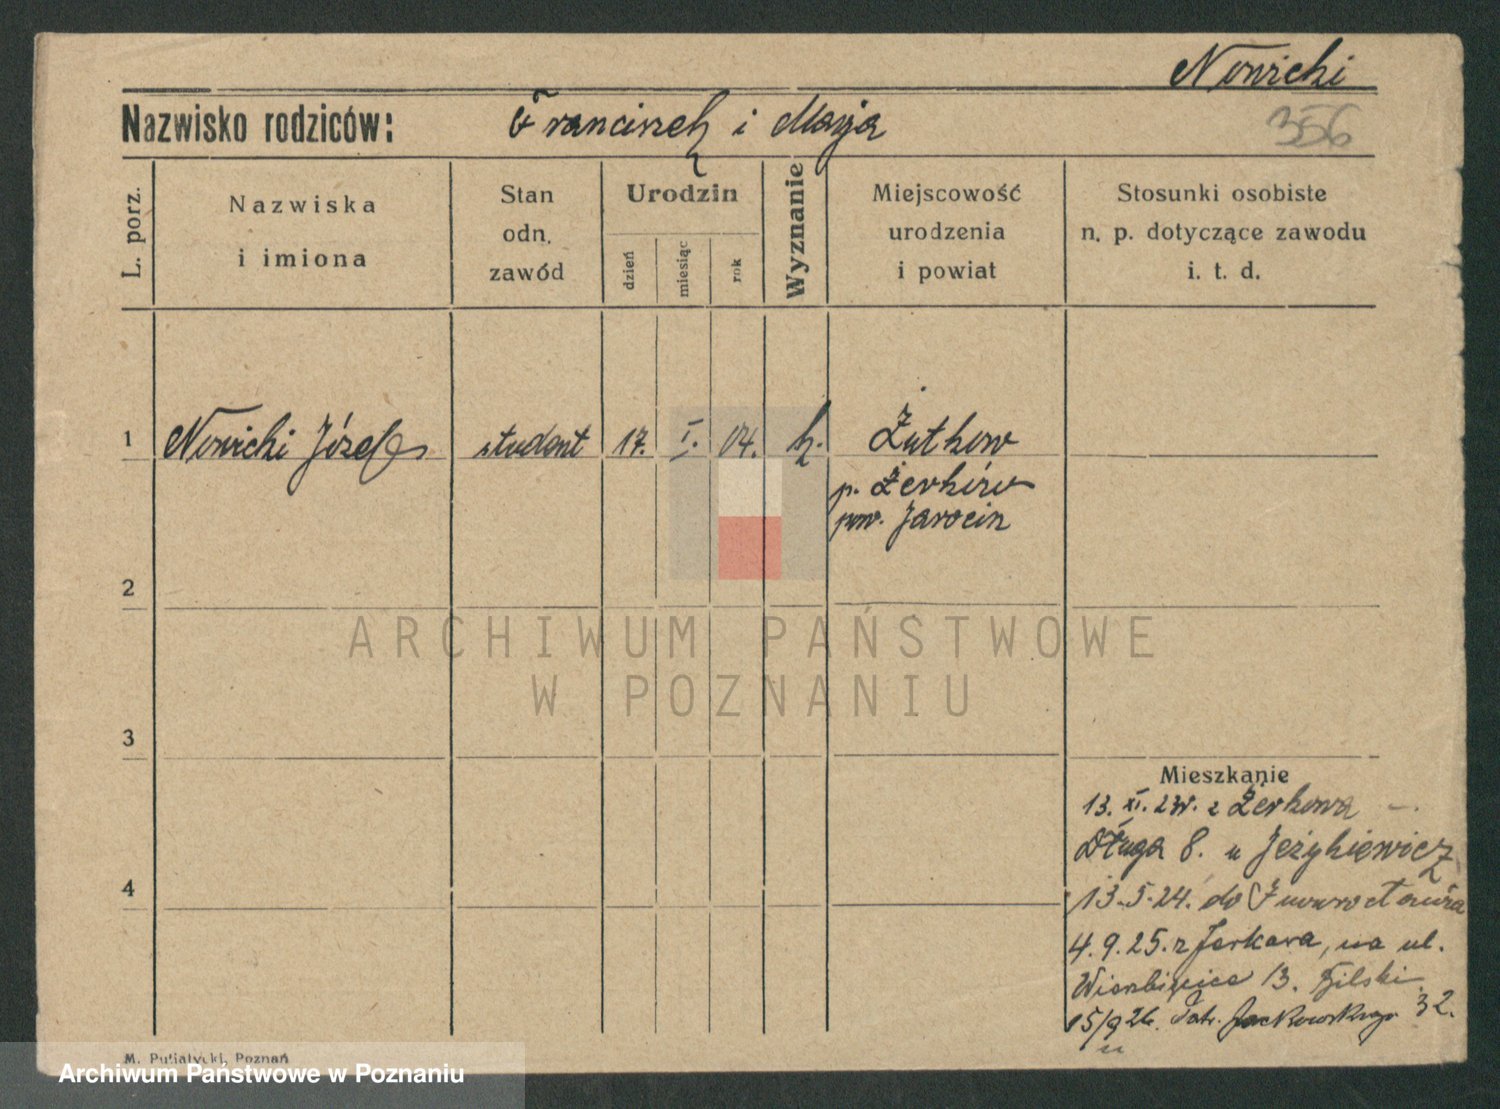 Nowicki
Nazwisko rodziców: Franciszek i Marja
356
L. porz.
Nazwiska i imiona
Stan odn. zawód
Urodzin
dzień
miesiąc
rok
Wyznanie
Miejscowość urodzenia i powiat
Stosunki osobiste n. p. dotyczące zawodu i. t. d.
1 Nowicki Józef student 17. I. 04. k. Żutkow
p. Żerków
pow. Jarocin
2
ARCHIWUM PAŃSTWOWE
W POZNANIU
3
Mieszkanie
13. XI. 23r. z Żerkowa
Długa 8. u Jeżykiewicz
4
13.5.24. do Inowrocławia
4.9.25. z Jarkawa, na ul.
Wierzbięcice 13.
15/9 26. Jackowskiego 32.
M. Putiatycki, Poznań
Archiwum Państwowe w Poznaniu